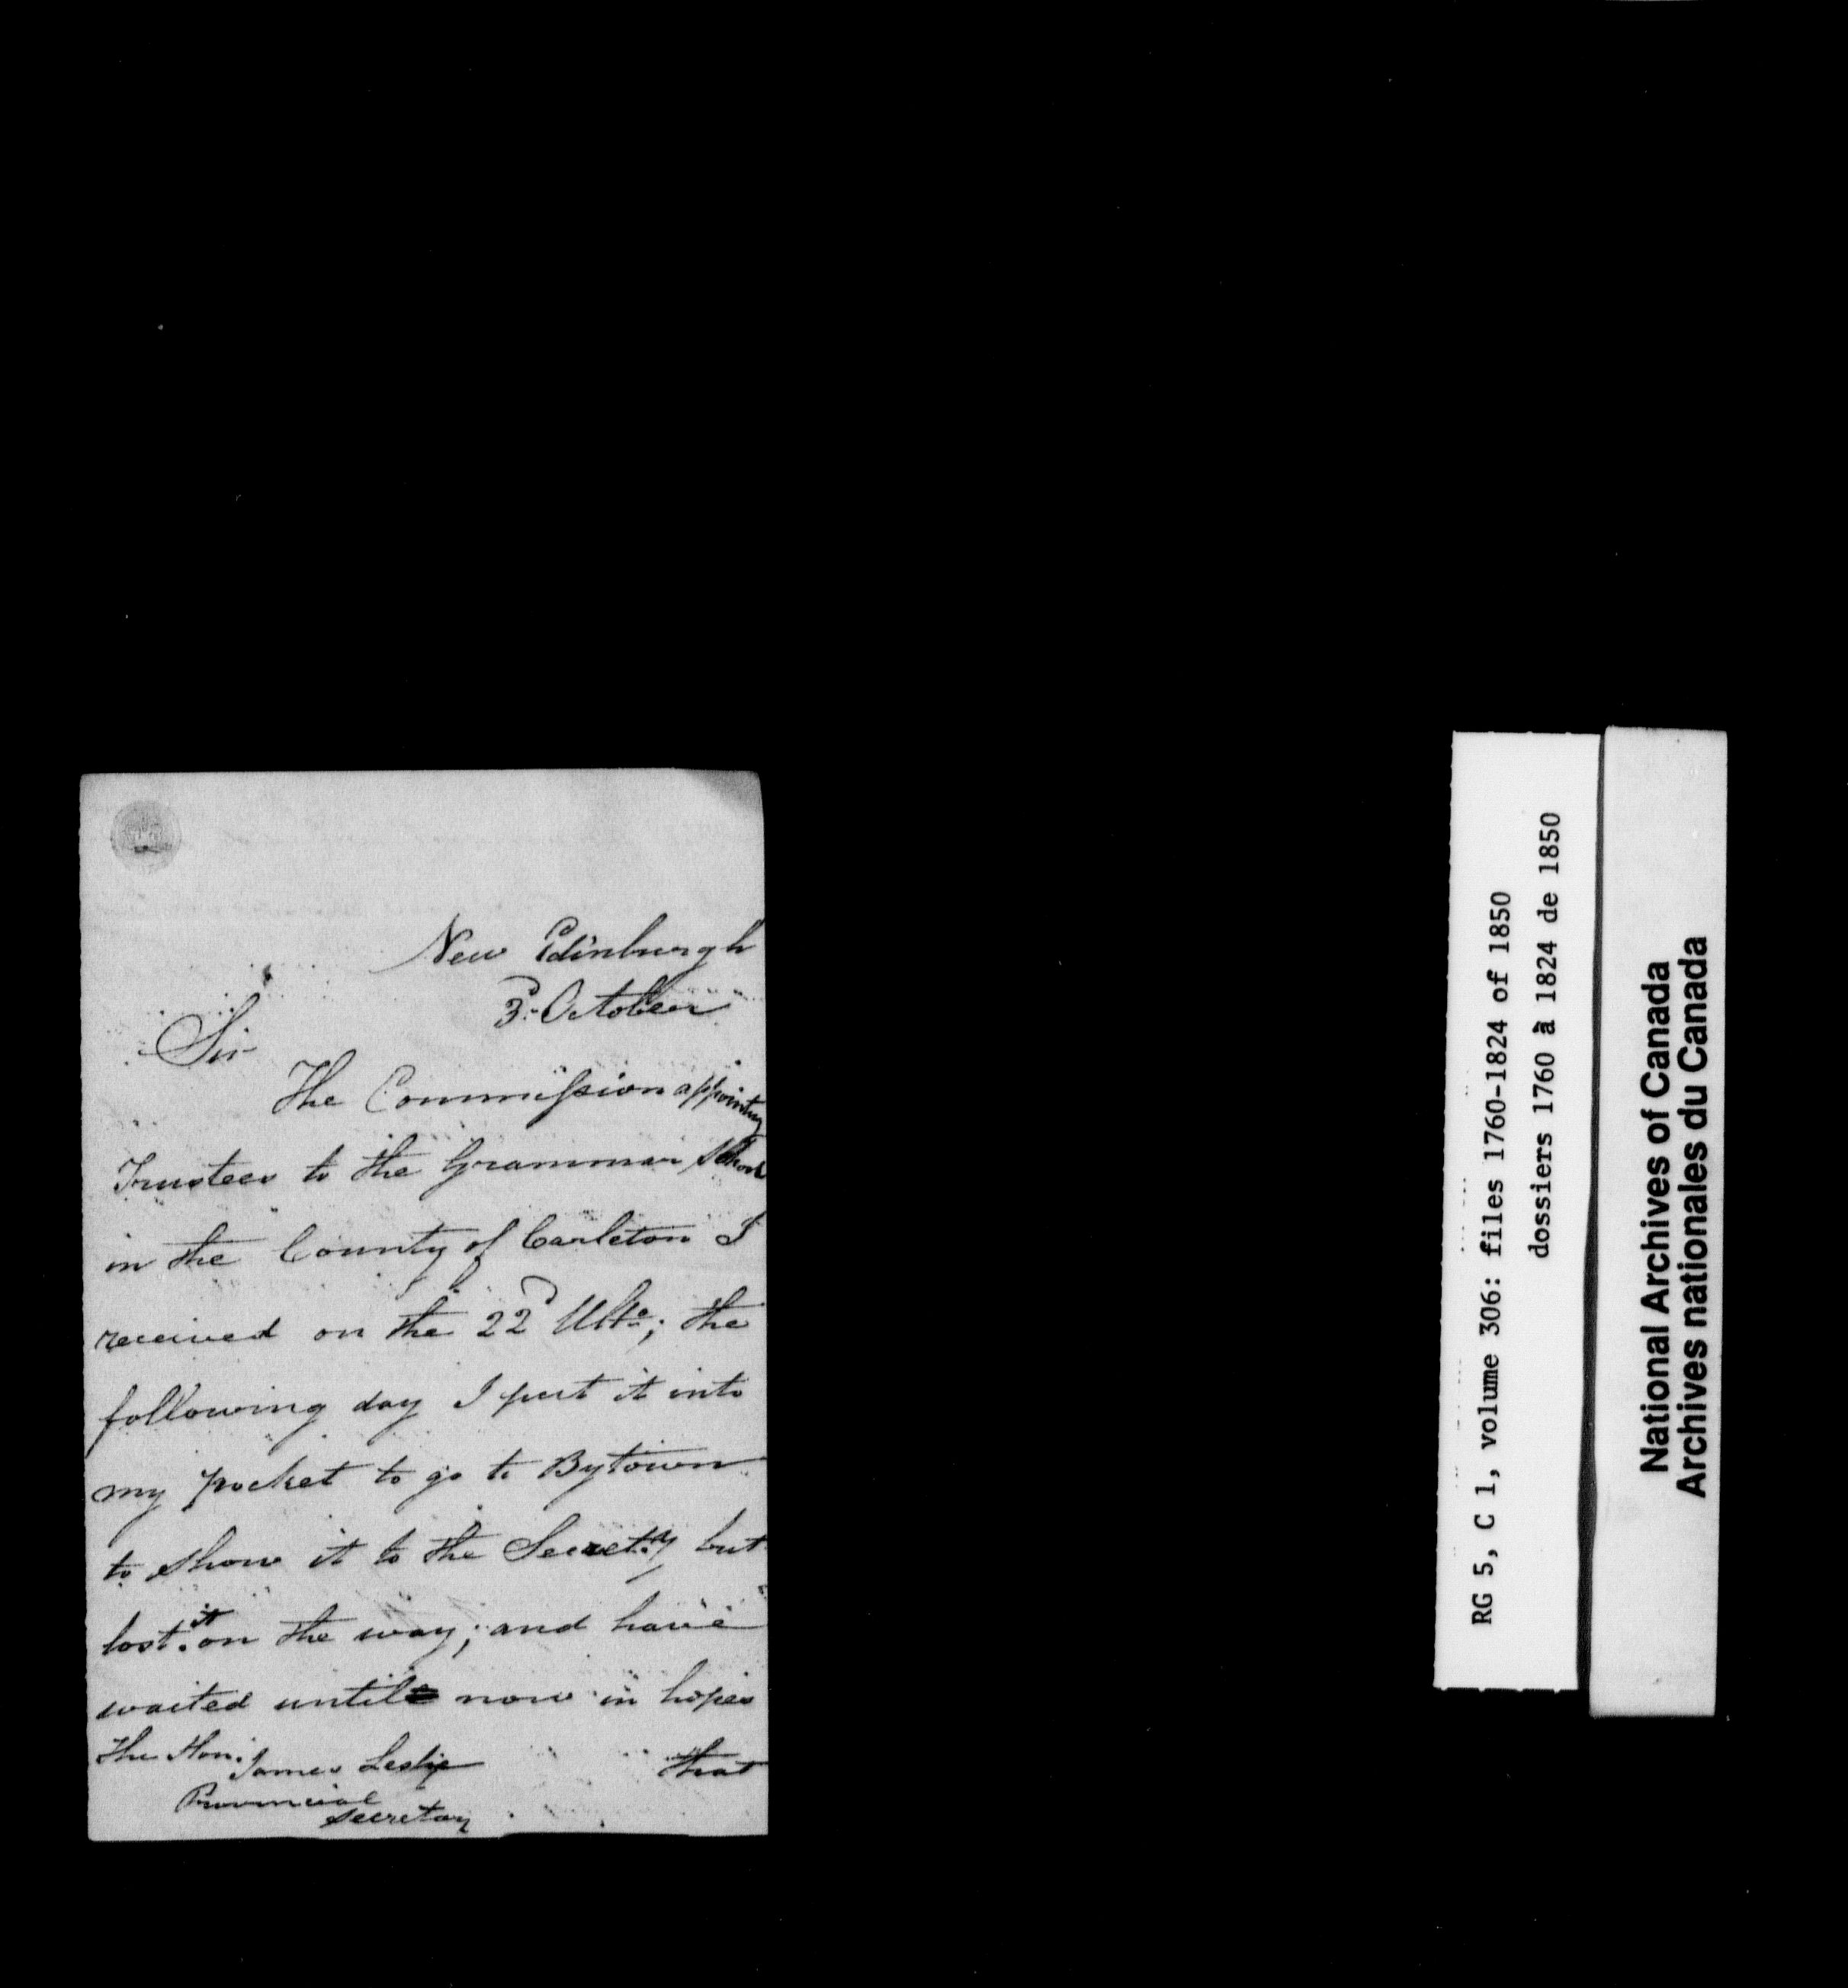 New Edinburgh
3d October
Sir
The Commission appointing
Trustees to the Grammar School
in the County of Carleton I
received on the 22d Ulto; the
following day I put it into
my pocket to go to Bytown
to show it to the Secrety but
lost it on the way; and have
waited until now in hopes
that
The Hon. James Leslie
Provincial
Secretary
RG 5, C 1, volume 306: files 1760-1824 of 1850
dossiers 1760 à 1824 de 1850
National Archives of Canada
Archives nationales du Canada